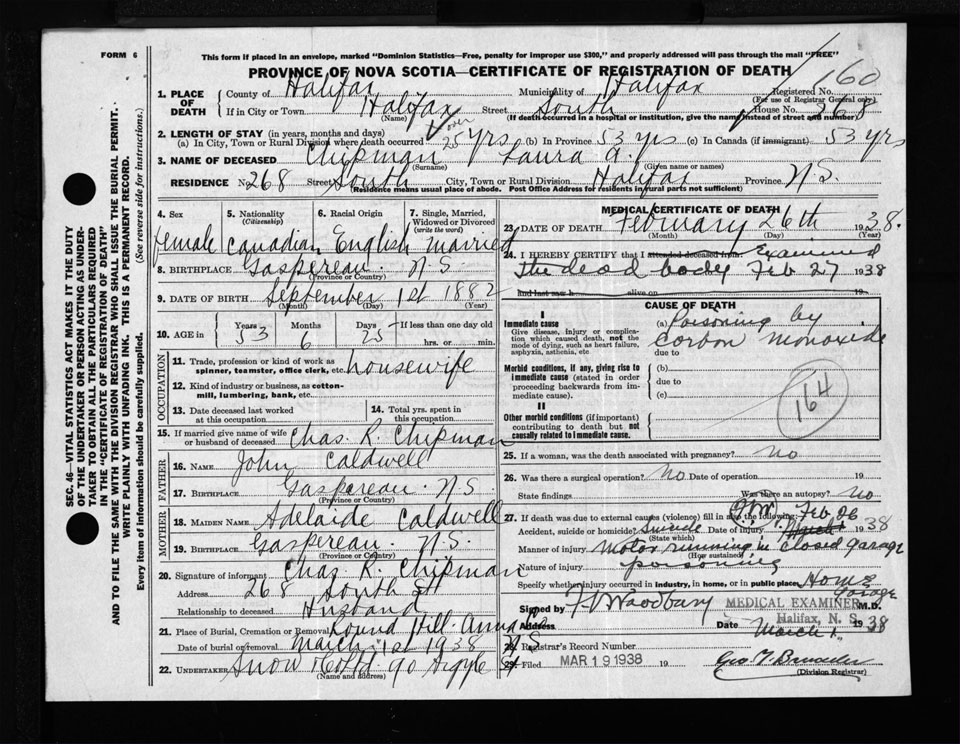 FORM 6
This form if placed in an envelope, marked "Dominion Statistics—Free, penalty for improper use $300," and properly addressed will pass through the mail "FREE"
PROVINCE OF NOVA SCOTIA—CERTIFICATE OF REGISTRATION OF DEATH
160
1. PLACE OF DEATH
County of Halifax Municipality of Halifax Registered No.
(For use of Registrar General only)
If in City or Town Halifax Street South House No. 268
(Name) (If death occurred in a hospital or institution, give the name instead of street and number)
2. LENGTH OF STAY (in years, months and days)
(a) In City, Town or Rural Division where death occurred over 25 yrs (b) In Province 53 yrs (c) In Canada (if immigrant) 53 yrs
3. NAME OF DECEASED Chipman Laura A.
(Surname) (Given name or names)
RESIDENCE No. 268 Street South City, Town or Rural Division Halifax Province N.S.
Residence means usual place of abode. Post Office Address for residents in rural parts not sufficient)
4. Sex 5. Nationality (Citizenship) 6. Racial Origin 7. Single, Married, Widowed or Divorced (write the word)
female Canadian English married
8. BIRTHPLACE Gaspereau. N.S.
(Province or Country)
9. DATE OF BIRTH September 1st 1882
(Month) (Day) (Year)
10. AGE in Years Months Days If less than one day old
53 6 25 hrs. or min.
OCCUPATION
11. Trade, profession or kind of work as spinner, teamster, office clerk, etc. housewife
12. Kind of industry or business, as cotton-mill, lumbering, bank, etc.
13. Date deceased last worked at this occupation
14. Total yrs. spent in this occupation
15. If married give name of wife or husband of deceased Chas. R. Chipman
FATHER
16. NAME John Caldwell
17. BIRTHPLACE Gaspereau. N.S.
(Province or Country)
MOTHER
18. MAIDEN NAME Adelaide Caldwell
19. BIRTHPLACE Gaspereau N.S.
(Province or Country)
20. Signature of informant Chas. R. Chipman
Address 268 South St
Relationship to deceased Husband
21. Place of Burial, Cremation or Removal Round Hill. Anna Co N.S.
Date of burial or removal March 1st 1938
22. UNDERTAKER Snow & Co Ltd 90 Argyle St
(Name and address)
MEDICAL CERTIFICATE OF DEATH
23. DATE OF DEATH February 26th 1938.
(Month) (Day) (Year)
24. I HEREBY CERTIFY that I attended deceased from Examined
the dead body Feb 27 1938
And last saw h alive on 19
CAUSE OF DEATH
I
Immediate cause
Give disease, injury or complication which caused death, not the mode of dying, such as heart failure, asphyxia, asthenia, etc
(a) Poisoning by
Carbon Monoxide
due to
Morbid conditions, if any, giving rise to immediate cause (stated in order proceeding backwards from immediate cause).
(b)
due to
(c)
164
II
Other morbid conditions (if important) contributing to death but not causally related to immediate cause.
25. If a woman, was the death associated with pregnancy? no
26. Was there a surgical operation? No Date of operation 19
State findings Was there an autopsy? no
27. If death was due to external causes (violence) fill in also the following: Feb. 26
Accident, suicide or homicide? Suicide Date of injury March 1938
(State which)
Manner of injury Motor running in closed garage
(How sustained)
Nature of injury poisoning
Specify whether injury occurred in industry, in home, or in public place Home garage
Signed by F V Woodbury MEDICAL EXAMINER M.D.
Address Halifax, N. S.
Date March 1, 1938
28. Registrar's Record Number
29. Filed MAR 19 1938 19
(Division Registrar)
SEC. 46—VITAL STATISTICS ACT MAKES IT THE DUTY
OF THE UNDERTAKER OR PERSON ACTING AS UNDER-
TAKER TO OBTAIN ALL THE PARTICULARS REQUIRED
IN THE "CERTIFICATE OF REGISTRATION OF DEATH"
AND TO FILE THE SAME WITH THE DIVISION REGISTRAR WHO SHALL ISSUE THE BURIAL PERMIT.
WRITE PLAINLY WITH UNFADING INK. THIS IS A PERMANENT RECORD.
Every item of information should be carefully supplied. (See reverse side for instructions.)